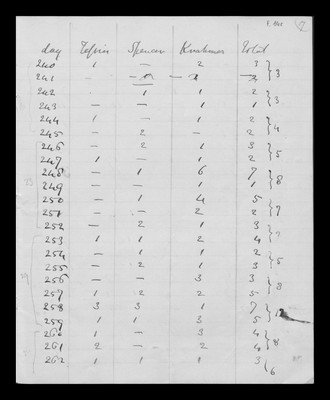 day Spencer Total
240 1 – 2 3
241 } 3
242 . 1 1 2
243 – – 1 1 } 3
244 1 – 1 2
245 – 2 – 2 } 4
246 – 2 1 3
247 1 – 1 2 } 5
248 – 1 6 7
249 – – 1 1 } 8
250 – 1 4 5
251 – – 2 2 } 7
252 – 2 1 3
253 1 1 2 4 } 7
254 – 1 1 2
255 – 2 1 3 } 5
256 – – 3 3
257 1 2 2 5 } 8
258 3 3 1 7
259 1 1 3 5 } 12
260 1 – 3 4
261 2 – 2 4 } 8
262 1 1 1 3
6